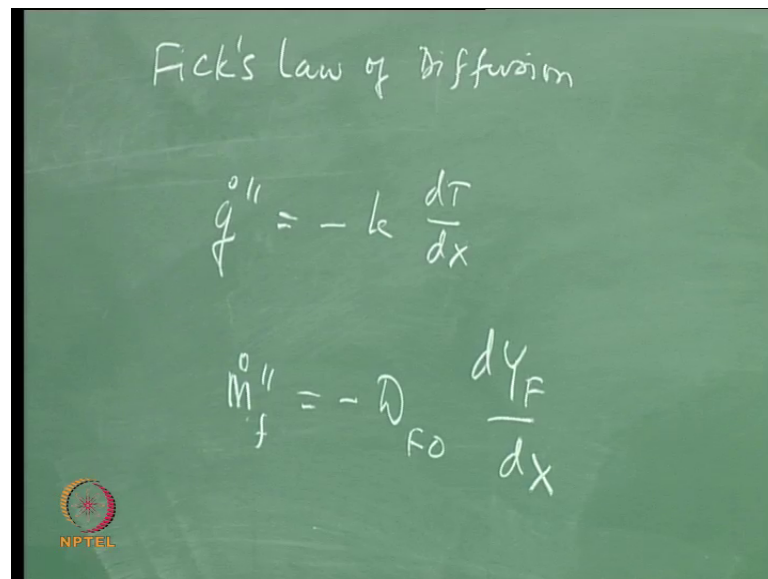 Fick's Law of Diffusion
q̇'' = - k dT/dx
ṁ''_f = - D_FO dY_F/dx
NPTEL